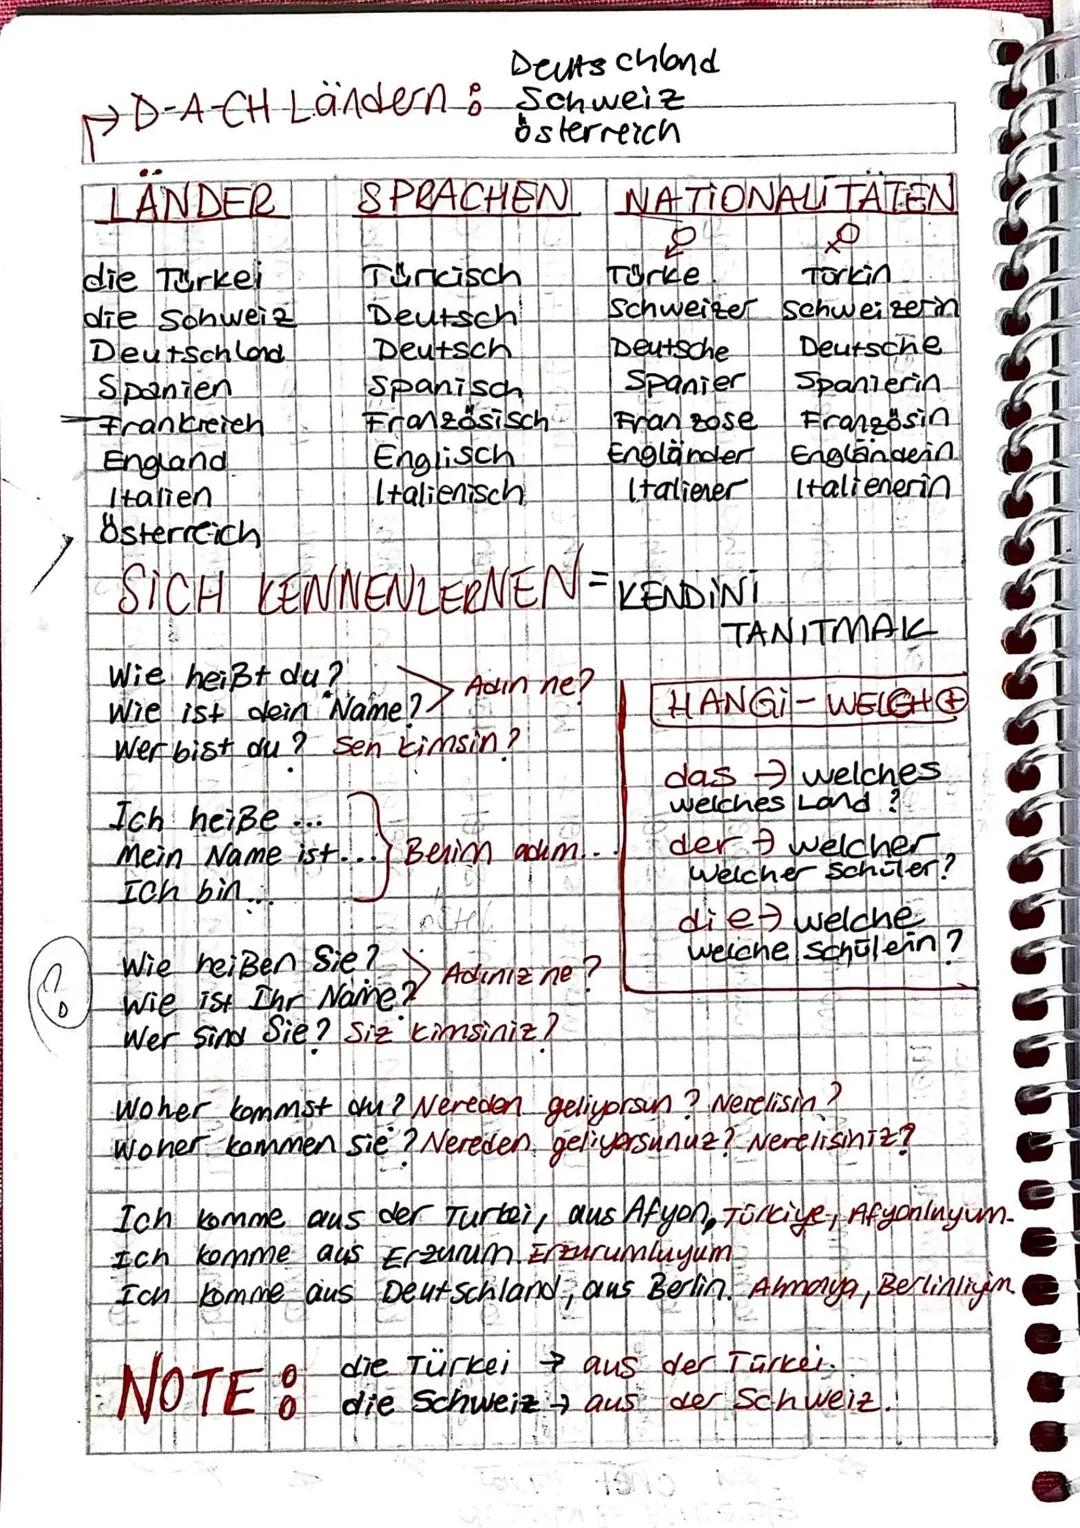 Deutschland
→ D-A-CH Ländern : Schweiz
Österreich
LÄNDER SPRACHEN NATIONALITÄTEN
♂ ♀
die Türkei Türkisch Türke Türkin
die Schweiz Deutsch Schweizer Schweizerin
Deutschland Deutsch Deutsche Deutsche
Spanien Spanisch Spanier Spanierin
Frankreich Französisch Franzose Französin
England Englisch Engländer Engländerin
Italien Italienisch Italiener Italienerin
Österreich
SICH KENNENLERNEN = KENDİNİ
TANITMAK
Wie heißt du?
Wie ist dein Name? > Adın ne?
Wer bist du? Sen kimsin?
Ich heiße ...
Mein Name ist... } Benim adım...
Ich bin...
Wie heißen Sie?
Wie ist Ihr Name? > Adınız ne?
Wer sind Sie? Siz kimsiniz?
HANGİ - WELCH +
das → welches
welches Land ?
der → welcher
welcher Schüler?
die → welche
welche Schülein ?
Woher kommst du? Nereden geliyorsun? Nerelisin?
Woher kommen sie? Nereden geliyorsunuz? Nerelisiniz?
Ich komme aus der Turkei, aus Afyon, Türkiye, Afyonluyum.
Ich komme aus Erzurum. Erzurumluyum
Ich komme aus Deutschland, aus Berlin. Almanya, Berlinliyim
NOTE : die Türkei → aus der Türkei.
die Schweiz → aus der Schweiz.